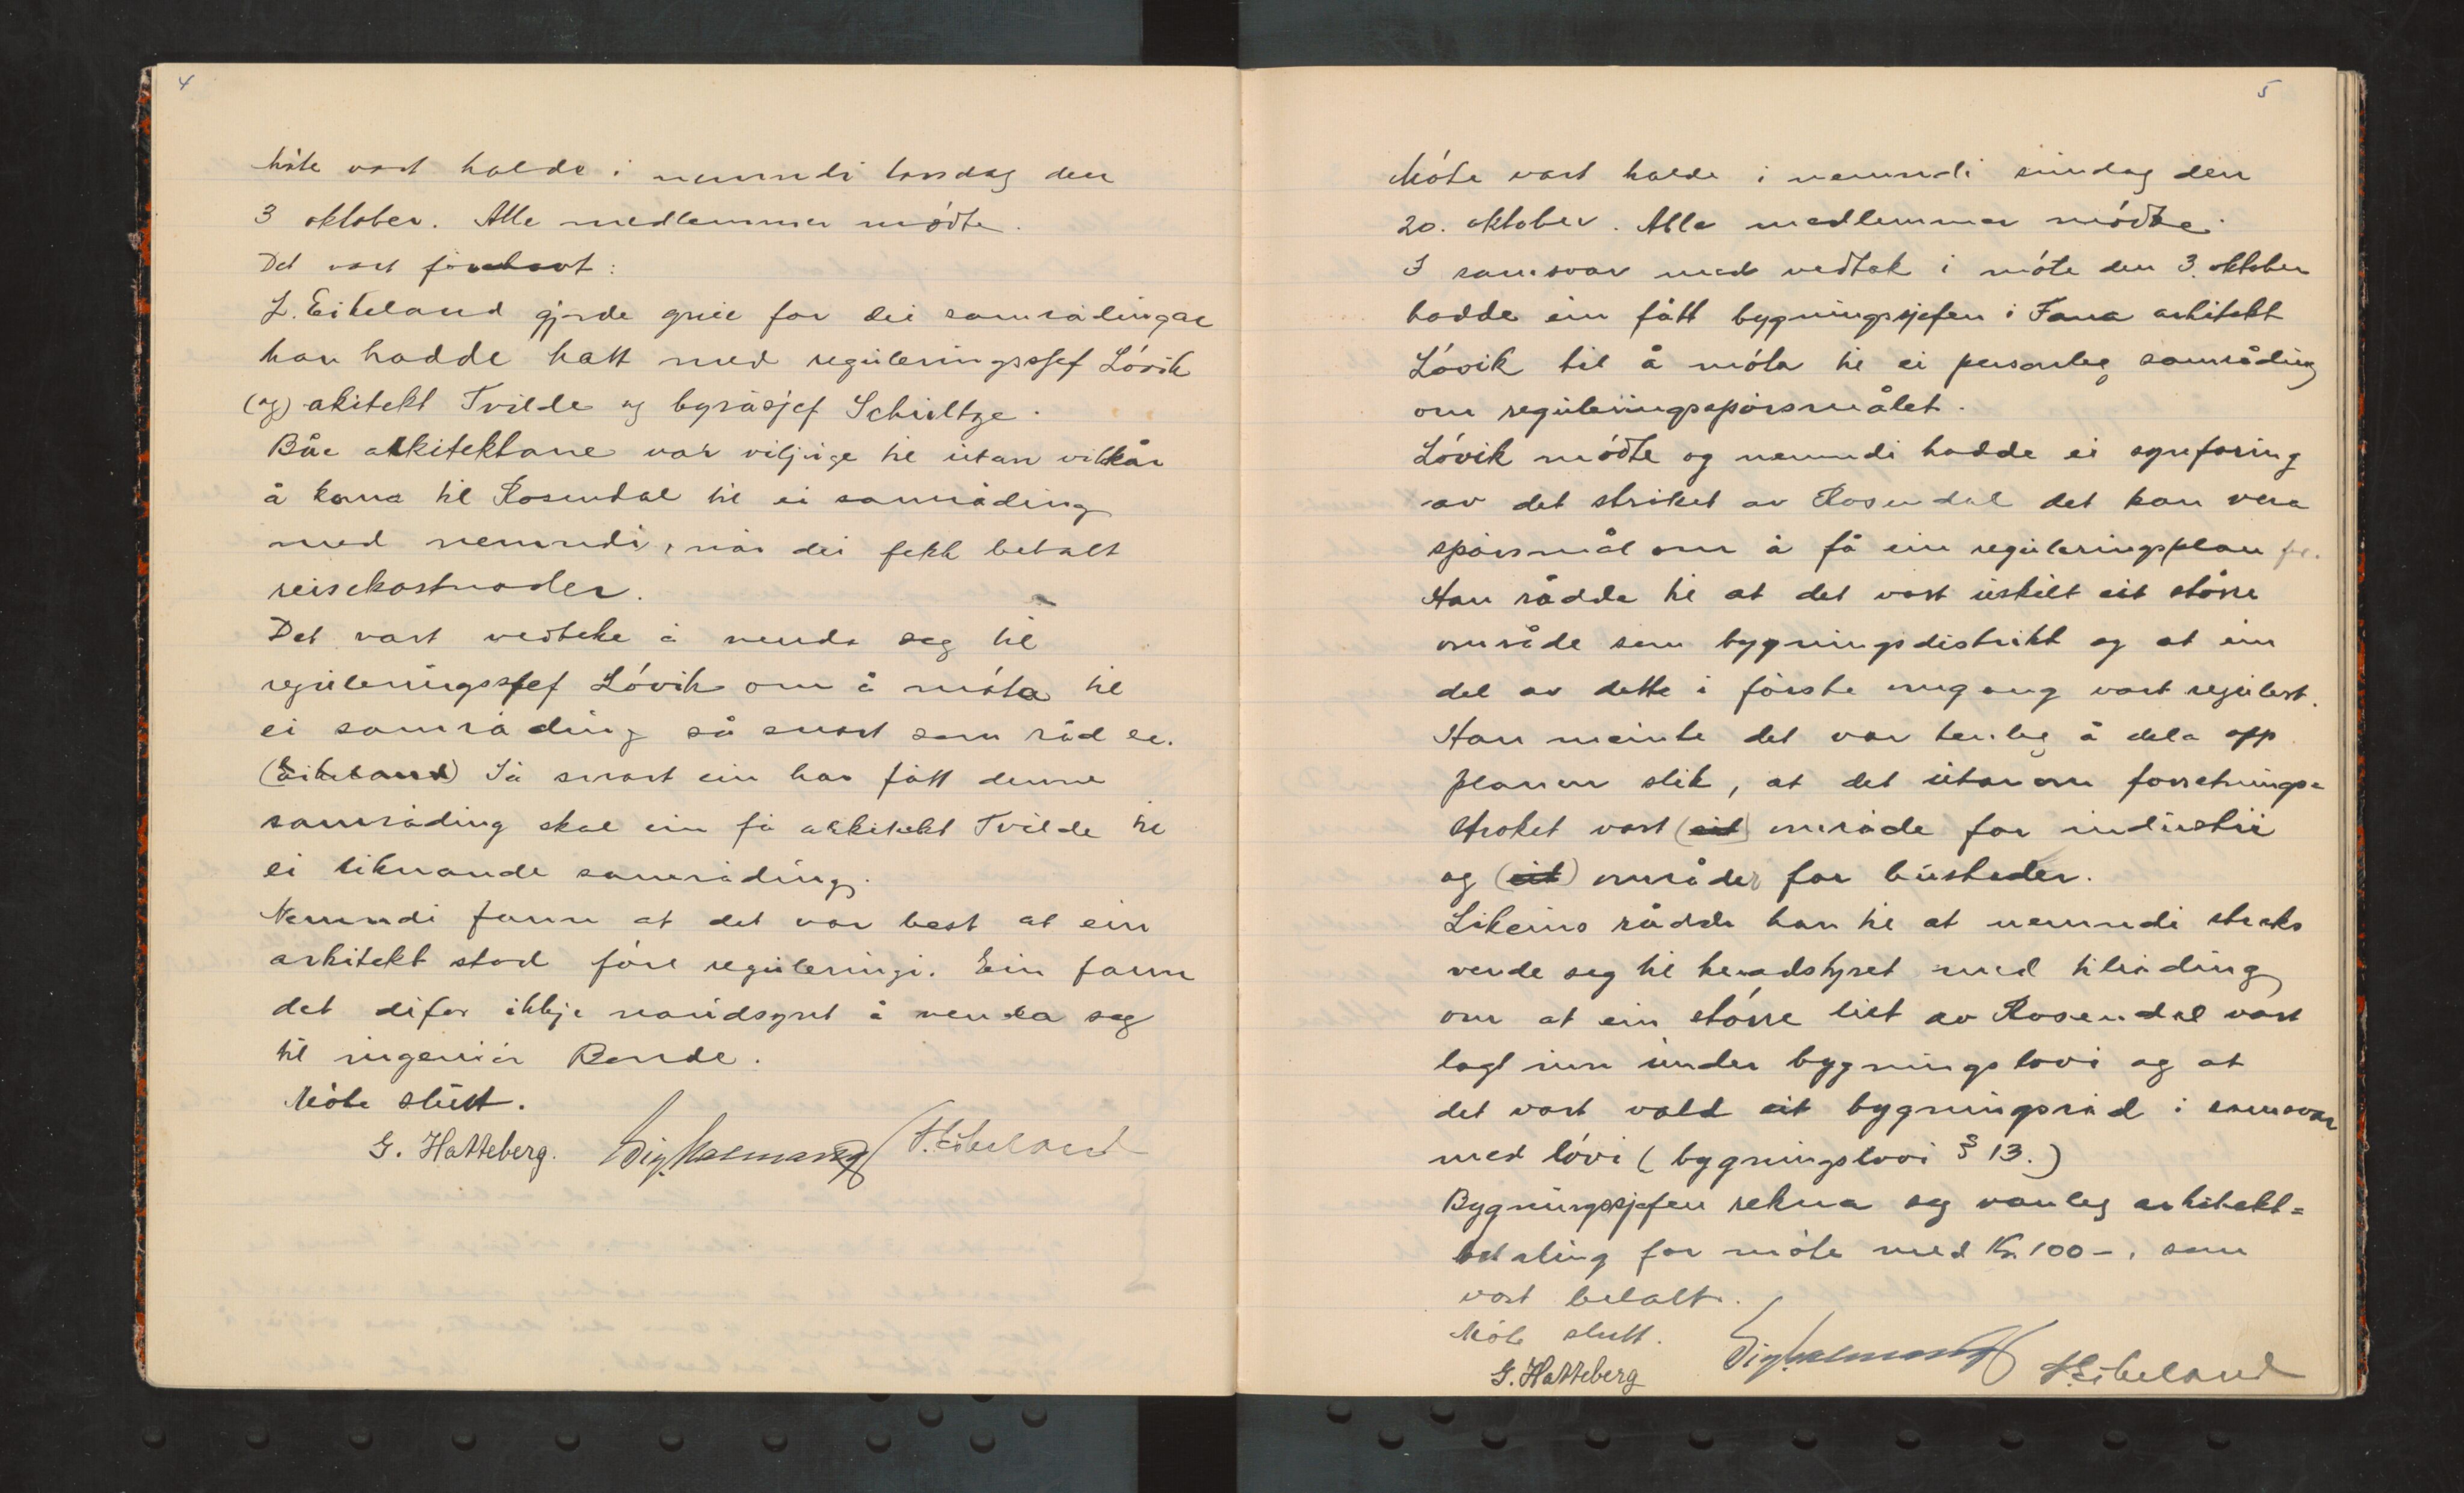 4
Móte vart halde i nemndi torsdag den
3 oktober. Alle medlemmer mødte.
Det vart fórehavt:
L. Eikeland gjorde greie for dei samrådingar
han hadde hatt med reguleringssjef Lóvik
(og) akitekt Tvilde og byråsjef Schultze.
Båe arkitektane var viljuge til utan vilkår
å koma til Rosendal til ei samråding
med nemndi, når dei fekk betalt
reisekostnader.
Det vart vedteke å venda seg til
reguleringssjef Lóvik om å móta til
ei samråding så snart som råd er.
(Eikeland) Så snart ein har fått denne
samråding skal ein få arkitekt Tvilde til
ei liknande samråding.
Nemndi fann at det var best at ein
arkitekt stod fóre reguleringi. Ein fann
det difor ikkje naudsynt å venda seg
til ingeniór Rande.
Móte slutt.
G. Hatteberg. L. Eikeland
5
Móte vart halde i nemndi sundag den
20. oktober. Alle medlemmer módte.
I samsvar med vedtak i móte den 3. oktober
hadde ein fått bygningssjefen i Fana arkitekt
Lóvik til å móta til ei personleg samråding
om reguleringsspórsmålet.
Lóvik módte og nemndi hadde ei synfaring
av det stróket av Rosendal det kan vera
spórsmål om å få ein reguleringsplan for.
Han rådde til at det vart utskilt eit stórre
område som bygningsdistrikt og at ein
del av dette i fórste omgang vart regulert.
Han meinte det var tenleg å dela opp
planen slik, at det utanom forretnings=
stroket vart (eit) område for industri
og (eit) områder for bustader.
Likeins rådde han til at nemndi straks
vende seg til heradstyret med tilråding
om at ein stórre bit av Rosendal vart
lagt inn under bygningslovi og at
det vart vald eit bygningsråd i samsvar
med lóvi (bygningslovi § 13.)
Bygningssjefen rekna seg vanleg arkitekt=
betaling for móte med Kr. 100-, som
vart betalt.
Móte slutt.
G. Hatteberg L. Eikeland